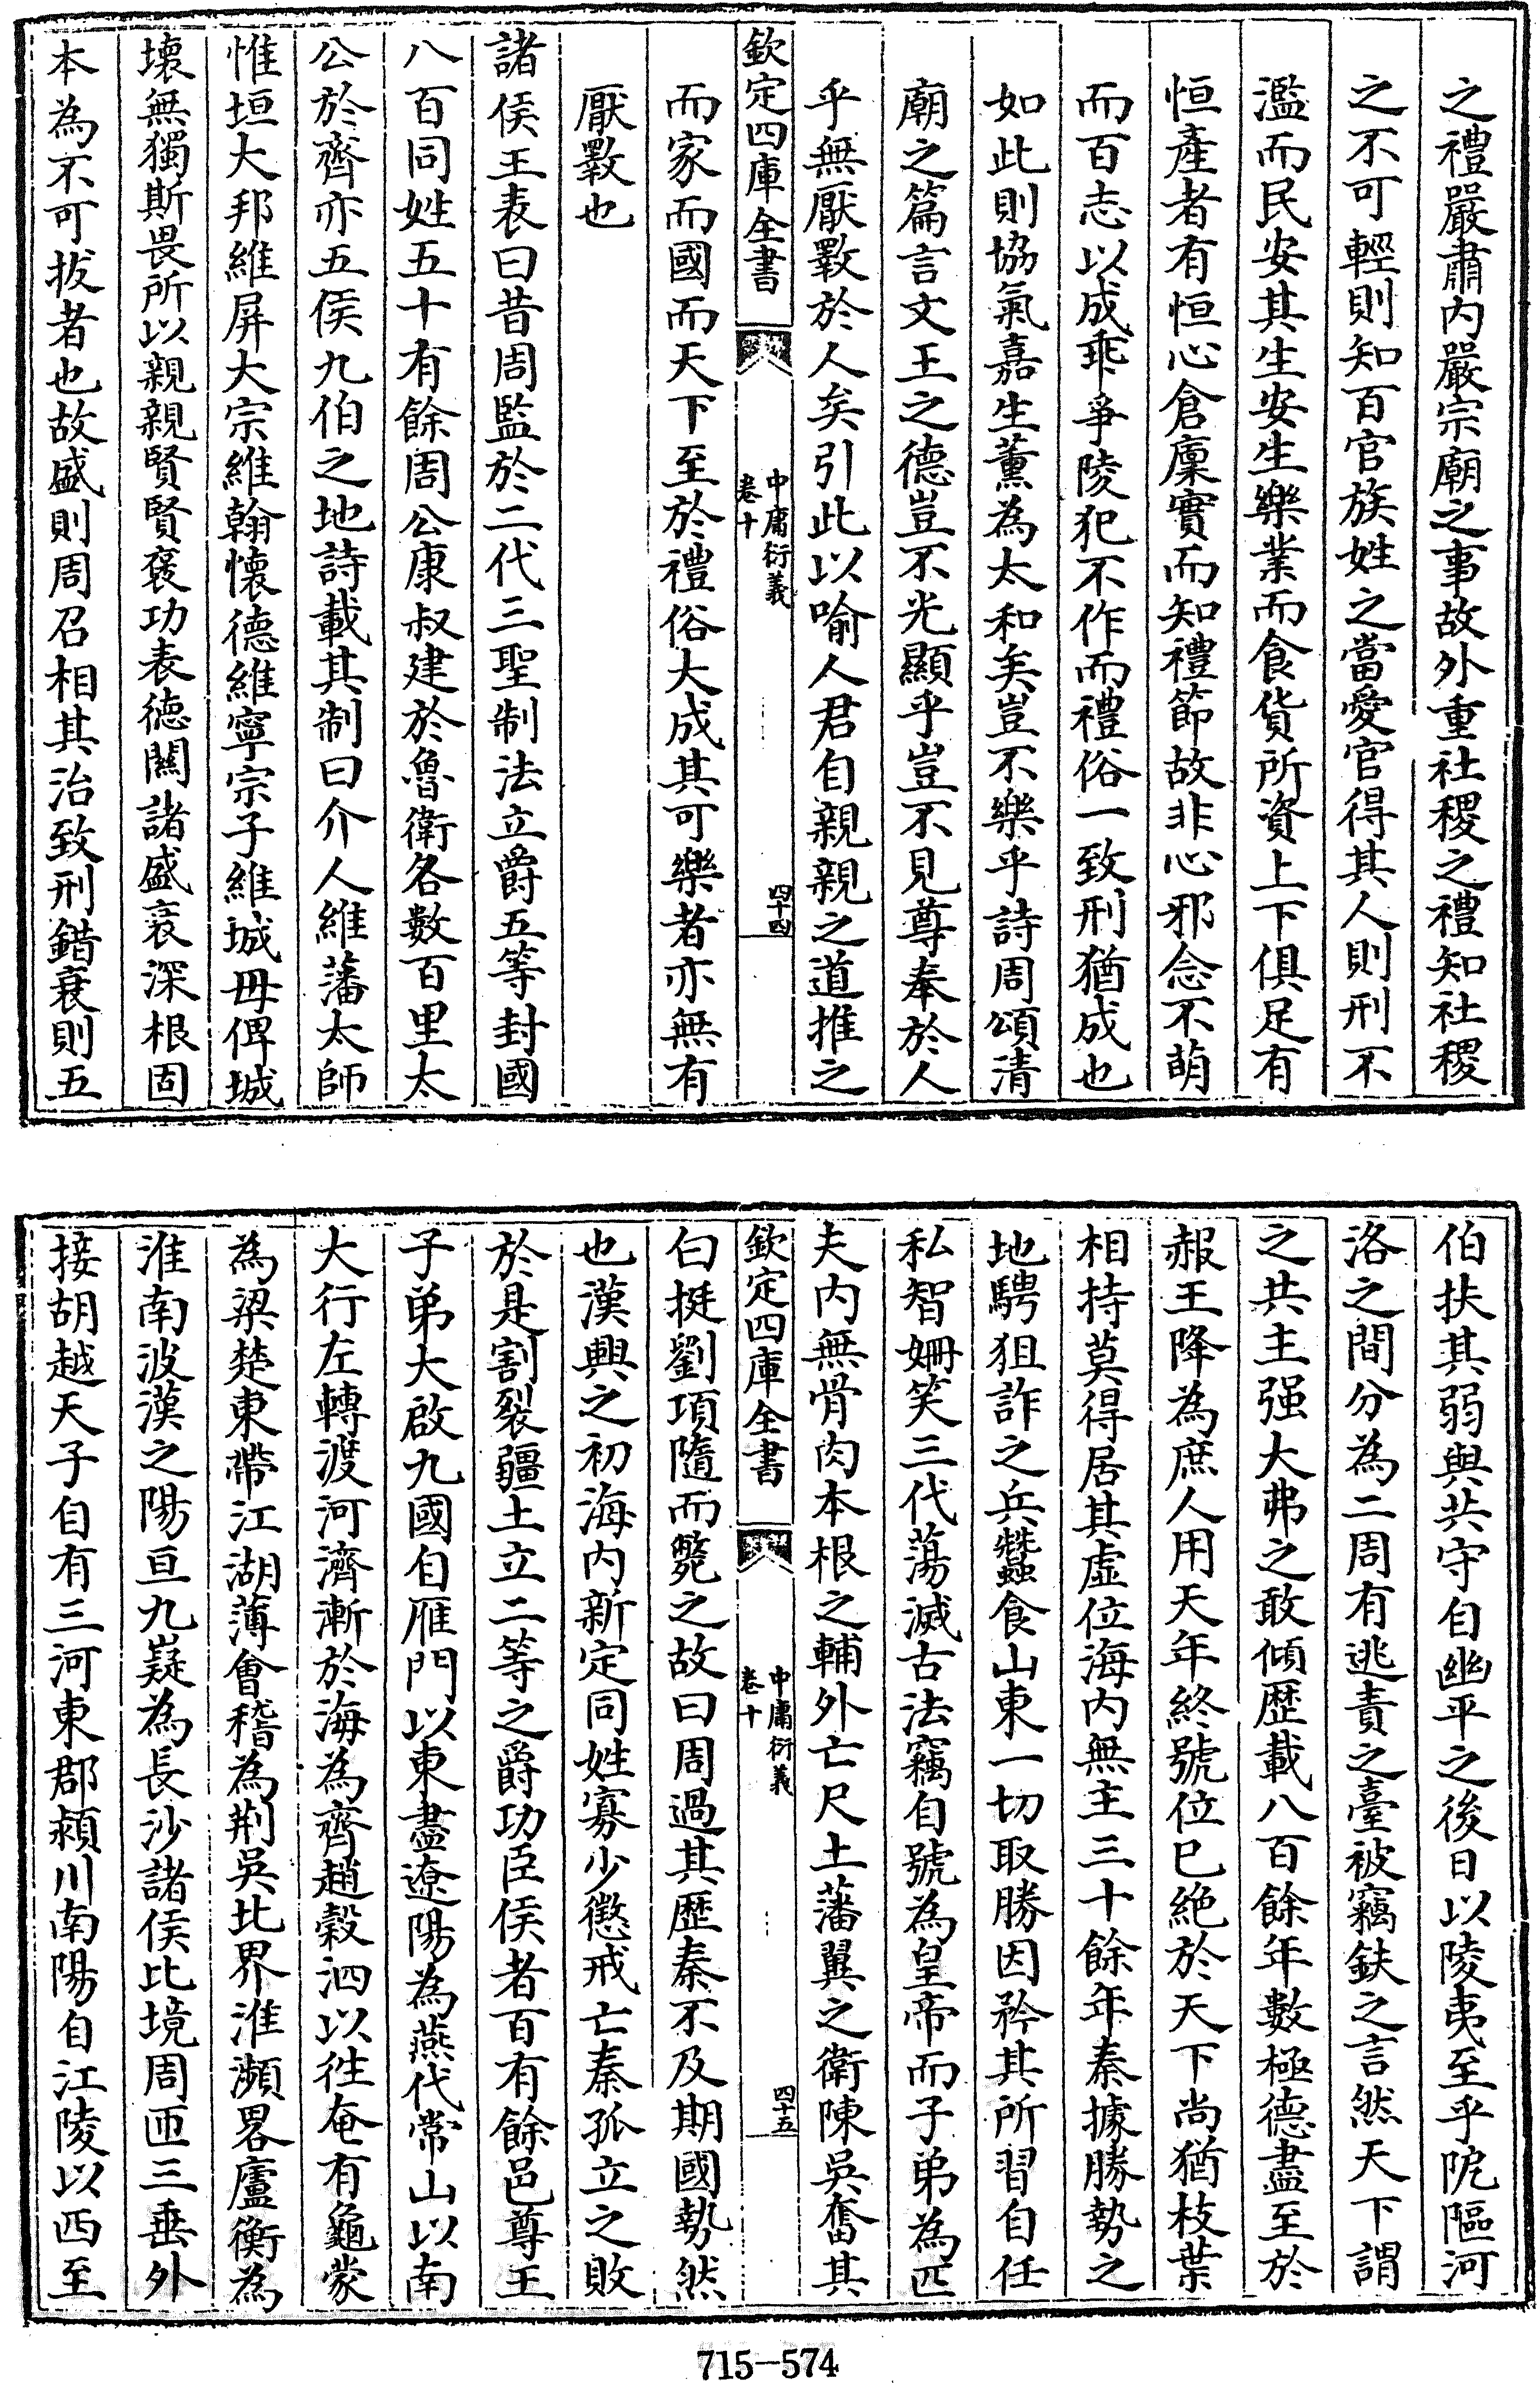 之禮嚴肅内嚴宗廟之事故外重社稷之禮知社稷
之不可輕則知百官族姓之當愛官得其人則刑不
濫而民安其生安生樂業而食貨所資上下俱足有
恒產者有恒心倉廩實而知禮節故非心邪念不萌
而百志以成乖爭陵犯不作而禮俗一致刑猶成也
如此則協氣嘉生薰為太和矣豈不樂乎詩周頌清
廟之篇言文王之德豈不光顯乎豈不見尊奉於人
乎無厭斁於人矣引此以喻人君自親親之道推之
欽定四庫全書
中庸衍義
卷十
四十四
而家而國而天下至於禮俗大成其可樂者亦無有
厭斁也
諸侯王表曰昔周監於二代三聖制法立爵五等封國
八百同姓五十有餘周公康叔建於魯衛各數百里太
公於齊亦五侯九伯之地詩載其制曰介人維藩太師
惟垣大邦維屏大宗維翰懷德維寧宗子維城毋俾城
壞無獨斯畏所以親親賢賢褒功表德關諸盛衰深根固
本為不可拔者也故盛則周召相其治致刑錯衰則五
伯扶其弱與共守自幽平之後日以陵夷至乎阸㰘河
洛之間分為二周有逃責之臺被竊鈇之言然天下謂
之共主强大弗之敢傾歷載八百餘年數極德盡至於
赧王降為庶人用天年終號位已絶於天下尚猶枝葉
相持莫得居其虛位海内無主三十餘年秦據勝勢之
地騁狙詐之兵蠶食山東一切取勝因矜其所習自任
私智姍笑三代蕩滅古法竊自號為皇帝而子弟為匹
夫内無骨肉本根之輔外亡尺土藩翼之衛陳吳奮其
欽定四庫全書
中庸衍義
卷十
四十五
白挺劉項隨而斃之故曰周過其歷秦不及期國勢然
也漢興之初海内新定同姓寡少懲戒亡秦孤立之敗
於是割裂疆土立二等之爵功臣侯者百有餘邑尊王
子弟大啟九國自雁門以東盡遼陽為燕代常山以南
大行左轉渡河濟漸於海為齊趙穀泗以徃奄有龜蒙
為梁楚東帶江湖薄會稽為荆吳北界淮瀕畧廬衡為
淮南波漢之陽亘九嶷為長沙諸侯比境周匝三垂外
接胡越天子自有三河東郡潁川南陽自江陵以西至
715-574